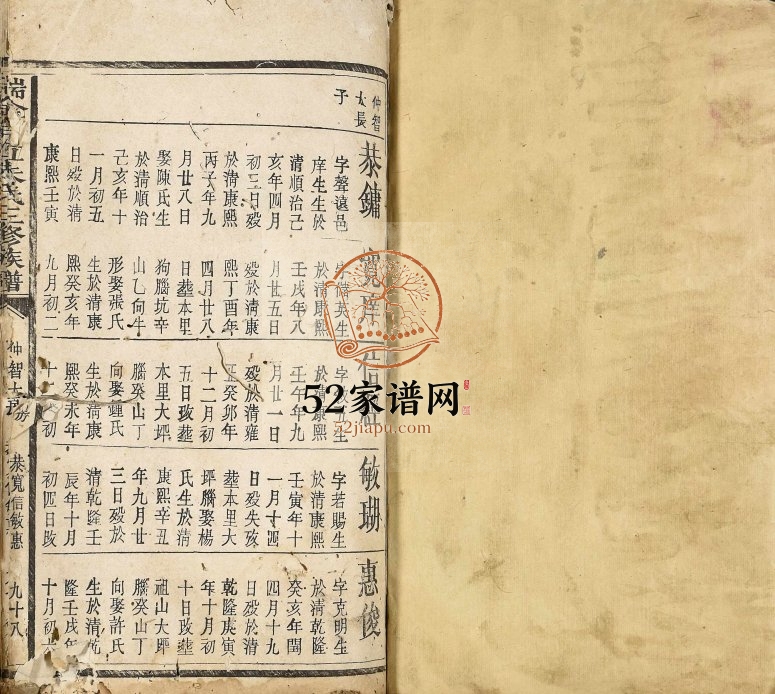 仲智
太長
子
恭鏞
字聲遠邑
庠生生於
清順治己
亥年四月
初三日殁
於清康熙
丙子年九
月廿八日
娶陳氏生
於清順治
己亥年十
一月初五
日殁於清
康熙壬寅
寬
英生
於清康熙
壬戌年八
月廿五日
殁於清康
熙丁酉年
四月廿八
日塟本里
狗腦坑辛
山乙向牛
形娶張氏
生於清康
熙癸亥年
九月初二
信
字 生
於清康熙
壬午年九
月廿一日
殁於清雍
正癸卯年
十二月初
五日改塟
本里大坪
腦癸山丁
向娶鍾氏
生於清康
熙癸未年
十
敏瑚
字若賜生
於清康熙
壬寅年十
一月十四
日殁失攷
塟本里大
坪腦娶楊
氏生於清
康熙辛丑
年九月廿
三日殁於
清乾隆壬
辰年十月
初四日改
惠俊
字克明生
於清乾隆
癸亥年閏
四月十九
日殁於清
乾隆庚寅
年十月初
十日改塟
祖山大坪
腦癸山丁
向娶許氏
生於清乾
隆壬戌年
十月初六
朱氏三修族譜
仲智太房
恭寬信敏惠
九十八
52家谱网
52jiapu.com